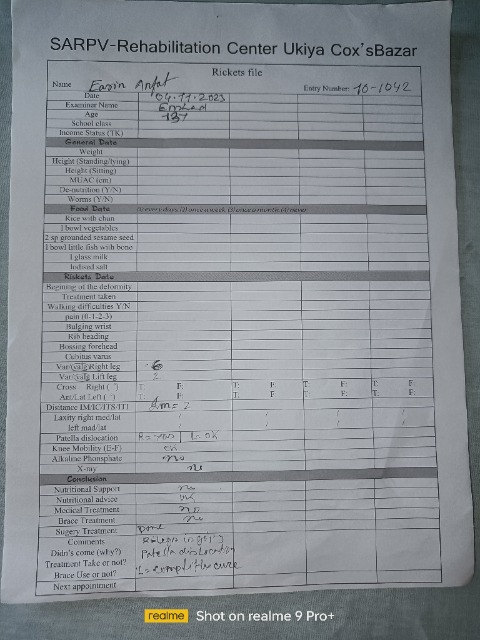 SARPV-Rehabilitation Center Ukiya Cox'sBazar
Rickets file
Name Easin Anfat Entry Number: 10-1042
Date 04.11.2023
Examiner Name Emdad
Age 13y
School class
Income Status (TK)
General Date
Weight
Height (Standing/lying)
Height (Sitting)
MUAC (cm)
De-nutrition (Y/N)
Worms (Y/N)
Food Date (1) every days (2) once a week (3) once a month (4) never
Rice with chun
1 bowl vegetables
2 sp grounded sesame seed
1 bowl little fish with bone
1 glass milk
Iodised salt
Rickets Date
Begining of the deformity
Treatment taken
Walking difficulties Y/N
pain (0-1-2-3)
Bulging wrist
Rib beading
Bossing forehead
Cubitus varus
Var/valg Right leg 6
Var/valg Lift leg 2
Cross Right ( ) T: F: T: F: T: F: T: F:
Ant/Lat Left ( ) T: F: T: F: T: F: T: F:
Distance IM/IC/TTS/TTI = 2
Laxity right med/lat / / / /
left mad/lat / / / /
Patella dislocation R= yas L= OK
Knee Mobility (E-F) OK
Alkaline Phosphate no
X-ray no
Conclusion
Nutritional Support no
Nutritional advice OK
Medical Treatment no
Brace Treatment no
Sugery Treatment Done
Comments
Didn's come (why?) Patella dislocation
Treatment Take or not?
Brace Use or not?
Next appointment
realme Shot on realme 9 Pro+